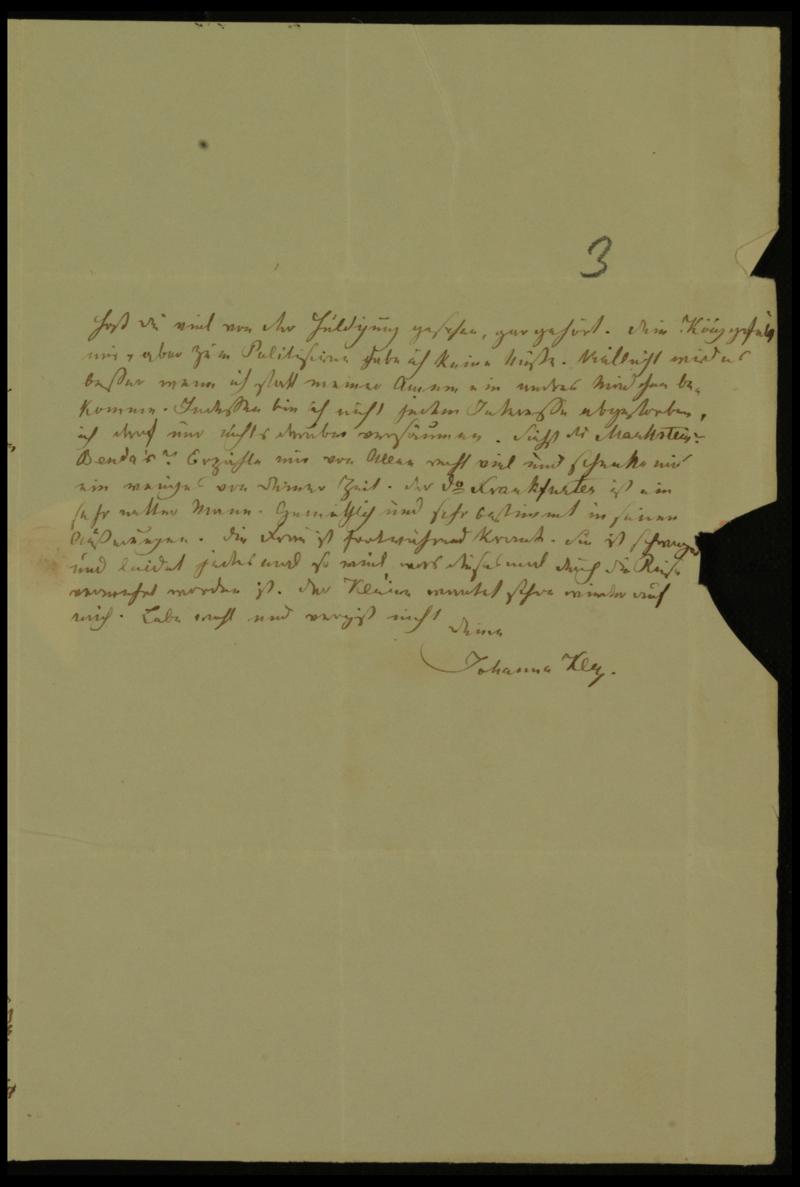 3
Hast du viel von der Huldigung gesehen, gar gehört. Dein König gefällt
mir, aber zum Politisiren habe ich keine Muße. Vielleicht wird es
besser wenn ich statt meiner Amme ein andres Mädchen be-
komme. Indessen bin ich nicht jedem Interesse abgestorben,
ich darf nur nichts darüber versäumen. Siehst du Markstein-
Benda's? Erzähle mir von Allen recht viel und schenke mir
ein weniges von deiner Zeit. Der Do Frankfurter ist ein
sehr netter Mann. Gemüthlich und sehr bestimmt in seinen
Äußerungen. Die Frau ist fortwährend krank. Sie ist schwanger
und leidet jedesmal so viel, was diesesmal durch die Reise
vermehrt worden ist. Der Kleine wartet schon wieder auf
mich. Lebe wohl und vergiß nicht
deine
Johanna Kley.